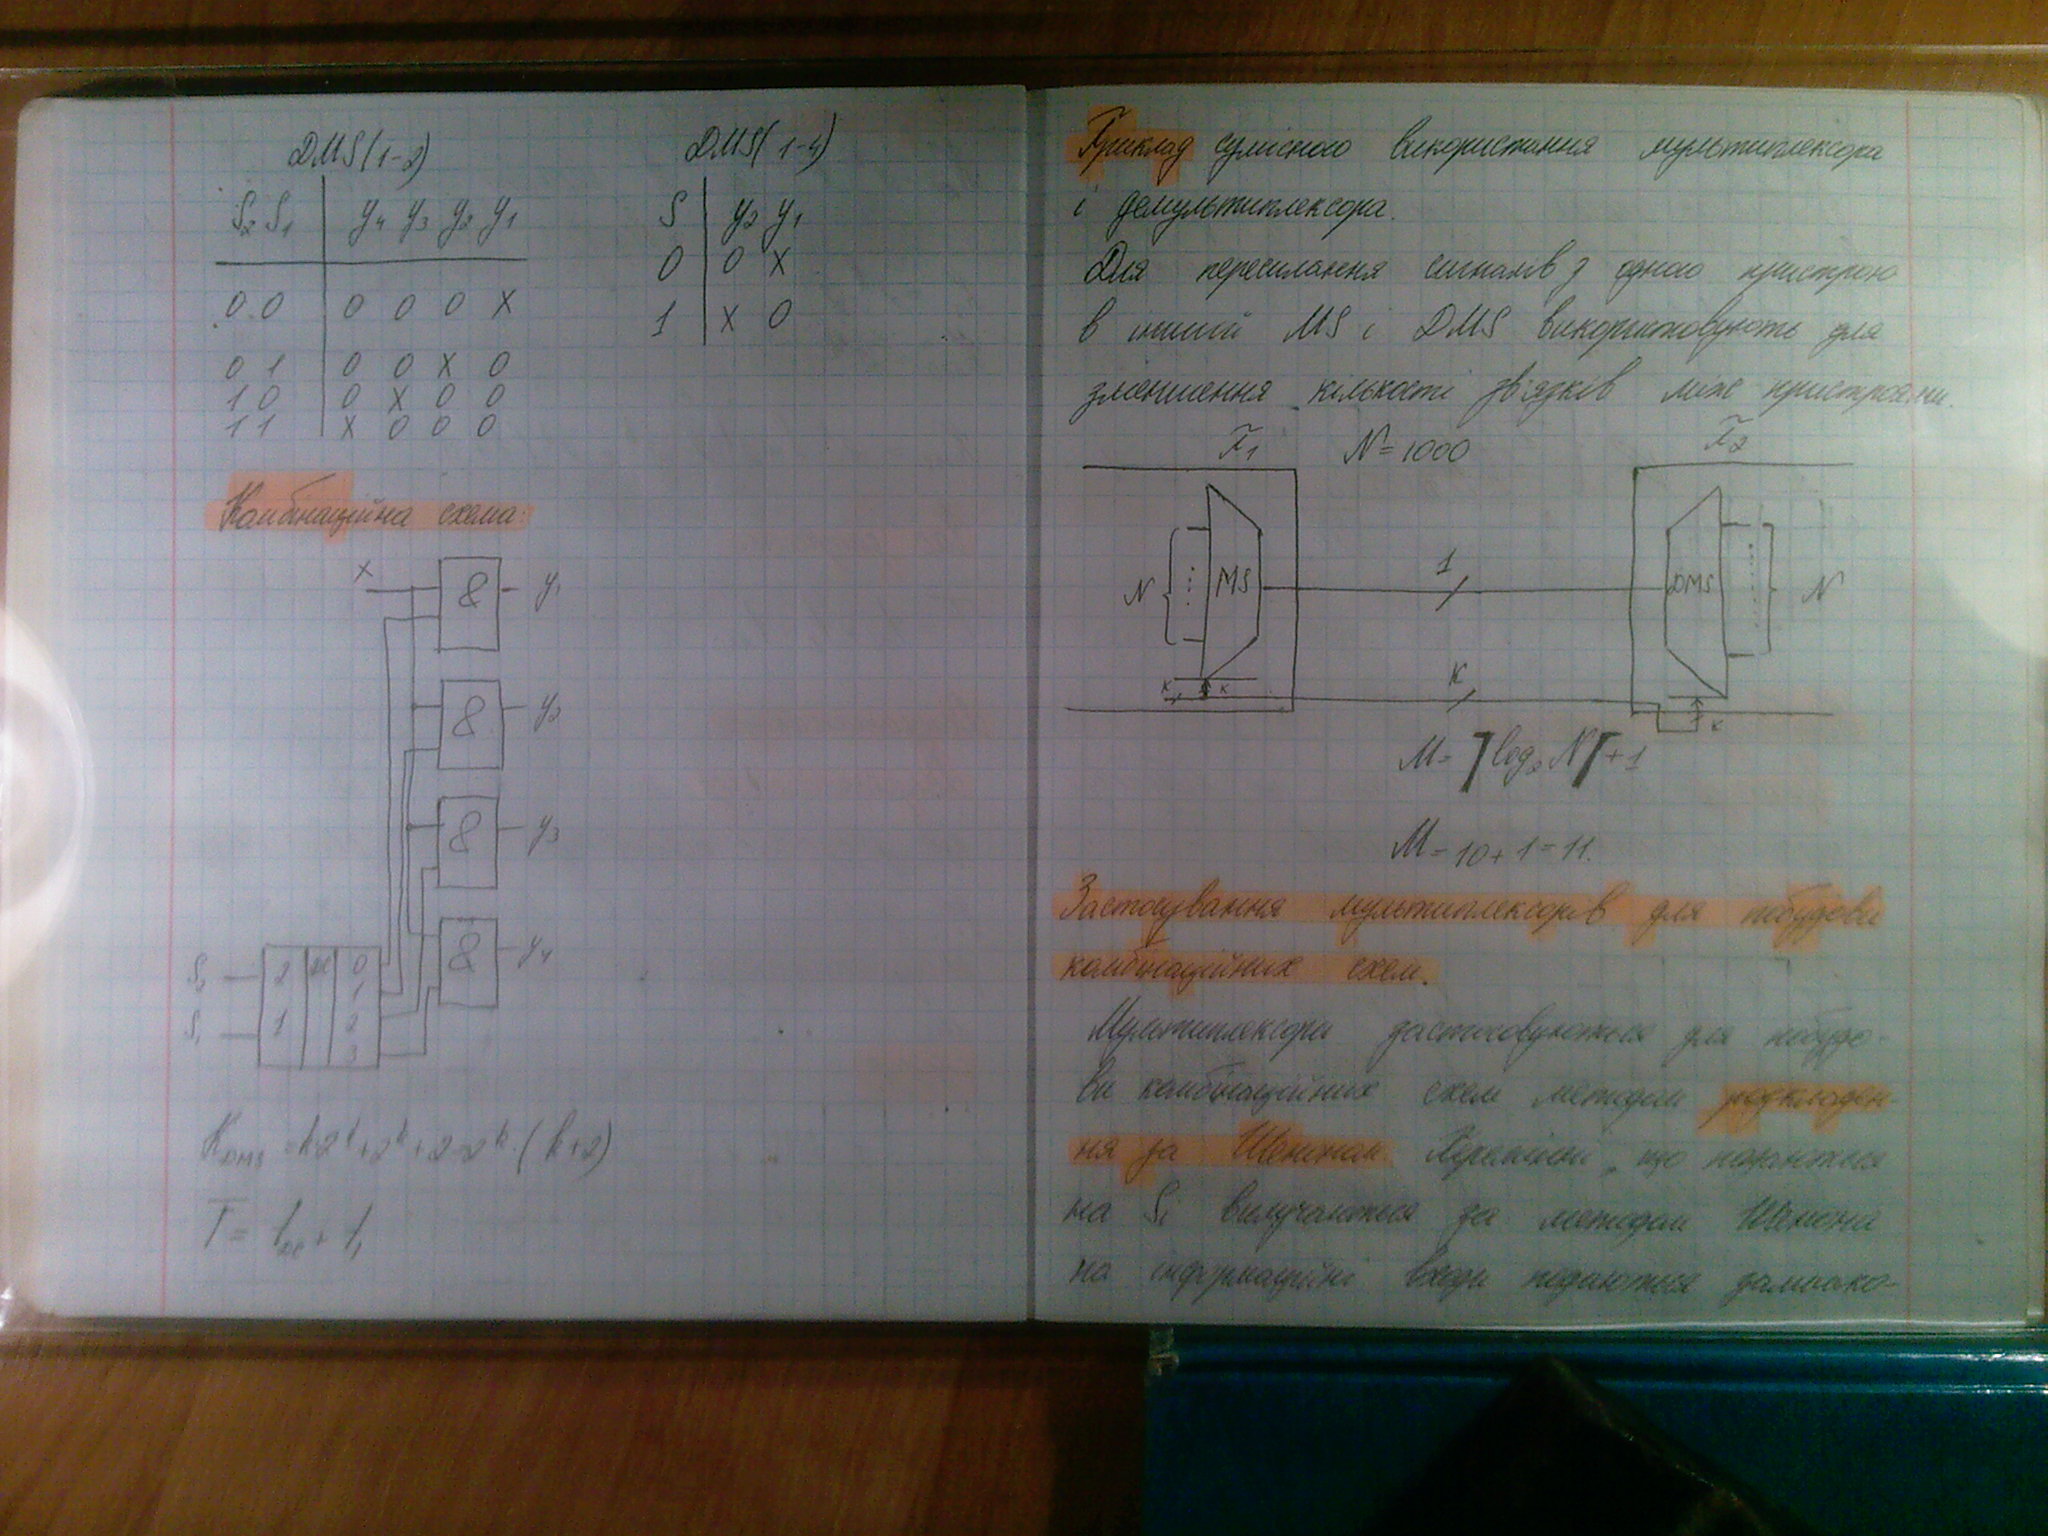 DMS(1-2)
S2 S1 y4 y3 y2 y1
0 0 0 0 0 X
0 1 0 0 X 0
1 0 0 X 0 0
1 1 X 0 0 0
DMS(1-4)
S y2 y1
0 0 X
1 X 0
Комбінаційна схема:
X & y1
& y2
& y3
& y4
S2 2 DC 0
1
S1 1 2
3
T = tDC + t1
Приклад сумісного використання мультиплексора
і демультиплексора.
Для пересилання сигналів з одного пристрою
в інший MS і DMS використовують для
зменшення кількості зв'язків між пристроями.
F1 N=1000 F2
N MS 1 DMS N
к к К к
M= ⌉log2 N⌈+1
M=10+1=11.
Застосування мультиплексорів для побудови
комбінаційних схем.
Мультиплексори застосовуються для побудо-
ви комбінаційних схем методом розкладен-
ня за Шеноном. що подаються
на Si вилучаються за методом Шенона
на інформаційні входи подаються